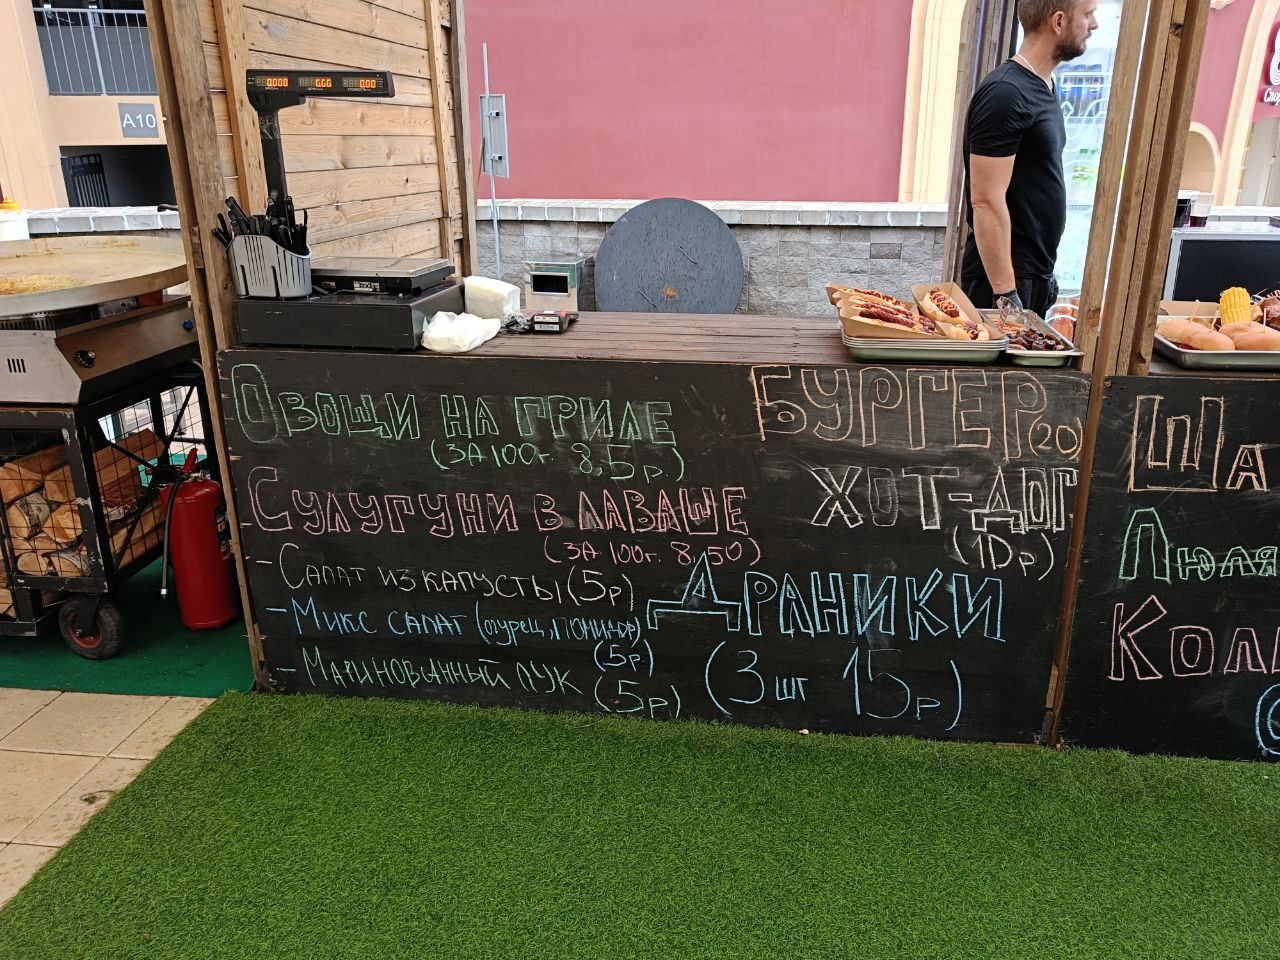 A10
0.000 0.00 0.00
Овощи на гриле
(за 100г. 8,5р.)
Сулугуни в лаваше
(за 100г. 8,50)
- Салат из капусты (5р)
- Микс салат (огурец, помидор)
(5р)
- Маринованный лук (5р)
БУРГЕР (20)
ХОТ-ДОГ
(10р)
Драники
(3 шт 15р)
Ша
Люля
Кол